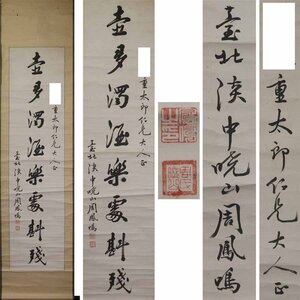 重太郎仁兄大人正
壺多濁酒樂處斟殘
臺北淡中曉山周鳳鳴
重太郎仁兄大人正
壺多濁酒樂處斟殘
臺北淡中曉山周鳳鳴
臺北淡中曉山周鳳鳴
重太郎仁兄大人正